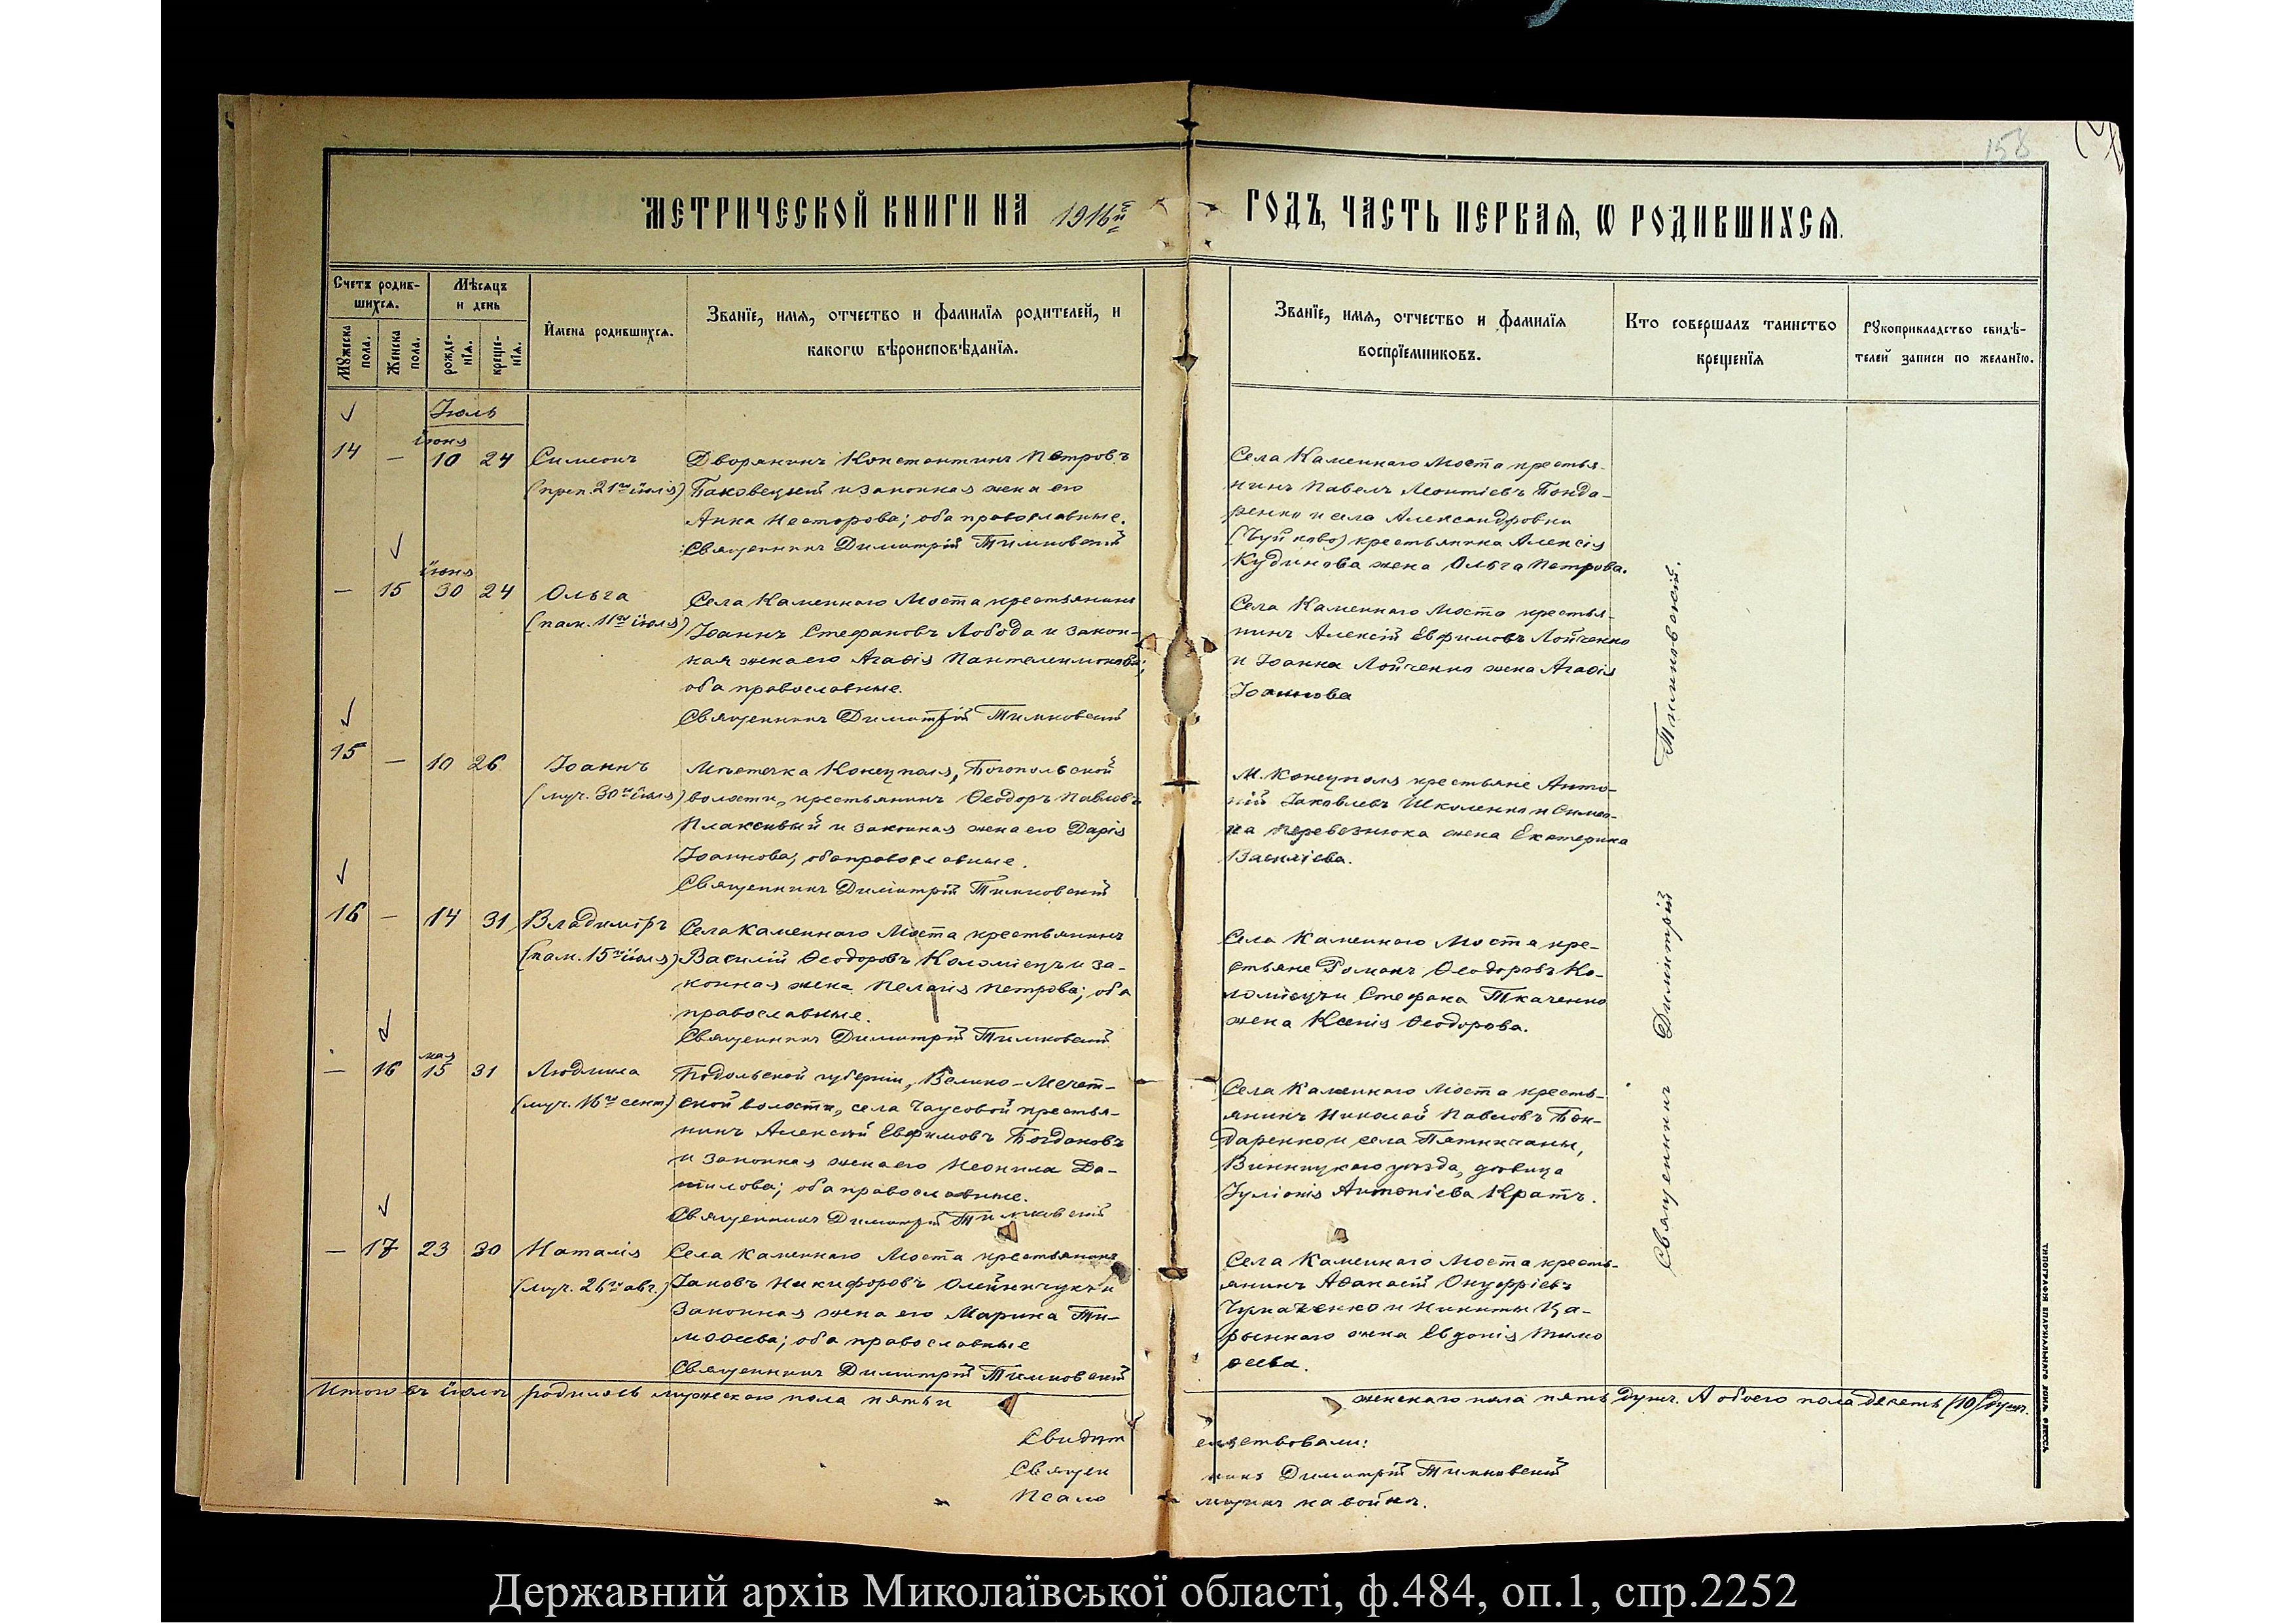 158
МЕТРИЧЕСКОЙ КНИГИ НА 1916й ГОДЪ, ЧАСТЬ ПЕРВАЯ, Ѡ РОДИВШИХСЯ.
Счетъ родив-
шихся.
Мѣсяцъ
и день
Мꙋжеска
пола.
Женска
пола.
рожде-
нїя.
креще-
нїя.
Имена родившихся.
Званїе, имя, отчество и фамилїя родителей, и
какогѡ вѣроисповѣданїя.
Званїе, имя, отчество и фамилїя
воспрїемниковъ.
Кто совершалъ таинство
крещенїя
Рꙋкоприкладство свидѣ-
телей записи по желанїю.
Іюль
14 — іюня 10 24 Симеонъ
(преп. 21го іюля)
Дворянинъ Константинъ Петровъ
Баковецкій и законная жена его
Анна Несторова; оба православные.
Священникъ Димитрій Тимковскій
Села Каменнаго Моста крестья-
нинъ Павелъ Леонтіевъ Бонда-
ренко и села Александровки
(Чуйково) крестьянина Алексія
Кудинова жена Ольга Петрова.
— 15 іюня 30 24 Ольга
(пам. 11го іюля)
Села Каменнаго Моста крестьянинъ
Іоаннъ Стефановъ Лобода и закон-
ная жена его Агафія Пантелеимонова;
оба православные.
Священникъ Димитрій Тимковскій
Села Каменнаго Моста крестья-
нинъ Алексій Евфимовъ Лойченко
и Іоанна Лойченко жена Агафія
Іоаннова
15 — 10 26 Іоаннъ
(муч. 30го іюля)
Мѣстечка Конецполя, Богопольской
волости, крестьянинъ Ѳеодоръ Павловъ
Плаксивый и законная жена его Дарія
Іоаннова; оба православные.
Священникъ Димитрій Тимковскій
М. Конецполя крестьяне Анто-
ній Іаковлевъ Школенко и Симео-
на Перевознюка жена Екатерина
Василіева.
16 — 14 31 Владиміръ
(пам. 15го іюля)
Села Каменнаго Моста крестьянинъ
Василій Ѳеодоровъ Коломіецъ и за-
конная жена Пелагія Петрова; оба
православные.
Священникъ Димитрій Тимковскій
Села Каменнаго Моста кре-
стьяне Романъ Ѳеодоровъ Ко-
ломіецъ и Стефана Ткаченко
жена Ксенія Ѳеодорова.
— 16 мая 15 31 Людмила
(муч. 16го сент.)
Подольской губерніи, Велико-Мечет-
ской волости, села Чаусовой крестья-
нинъ Алексій Евфимовъ Богдановъ
и законная жена его Неонила Да-
нилова; оба православные.
Священникъ Димитрій Тимковскій
Села Каменнаго Моста кресть-
янинъ Николай Павловъ Бон-
даренко и села Пятничаны,
Винницкаго уѣзда, дѣвица
Іуліанія Антоніева Кратъ.
— 17 23 30 Наталія
(муч. 26го авг.)
Села Каменнаго Моста крестьянинъ
Іаковъ Никифоровъ Олейничукъ и
законная жена его Марина Ти-
моѳеева; оба православные
Священникъ Димитрій Тимковскій
Села Каменнаго Моста кресть-
янинъ Аѳанасій Онуфріевъ
Чумаченко и Никиты Ца-
рыннаго жена Евдокія Тимо
ѳеева.
Священникъ Димитрій Тимковскій.
Итого въ іюлѣ родилось мужескаго пола пять и женскаго пола пять душъ. А обоего пола десять (10) душъ.
Свидѣтельствовали:
Священникъ Димитрій Тимковскій
Псаломщикъ на войнѣ.
ТИПОГРАФІЯ ЕПАРХІАЛЬНАГО ДОМА. ОДЕССА.
Державний архів Миколаївської області, ф.484, оп.1, спр.2252